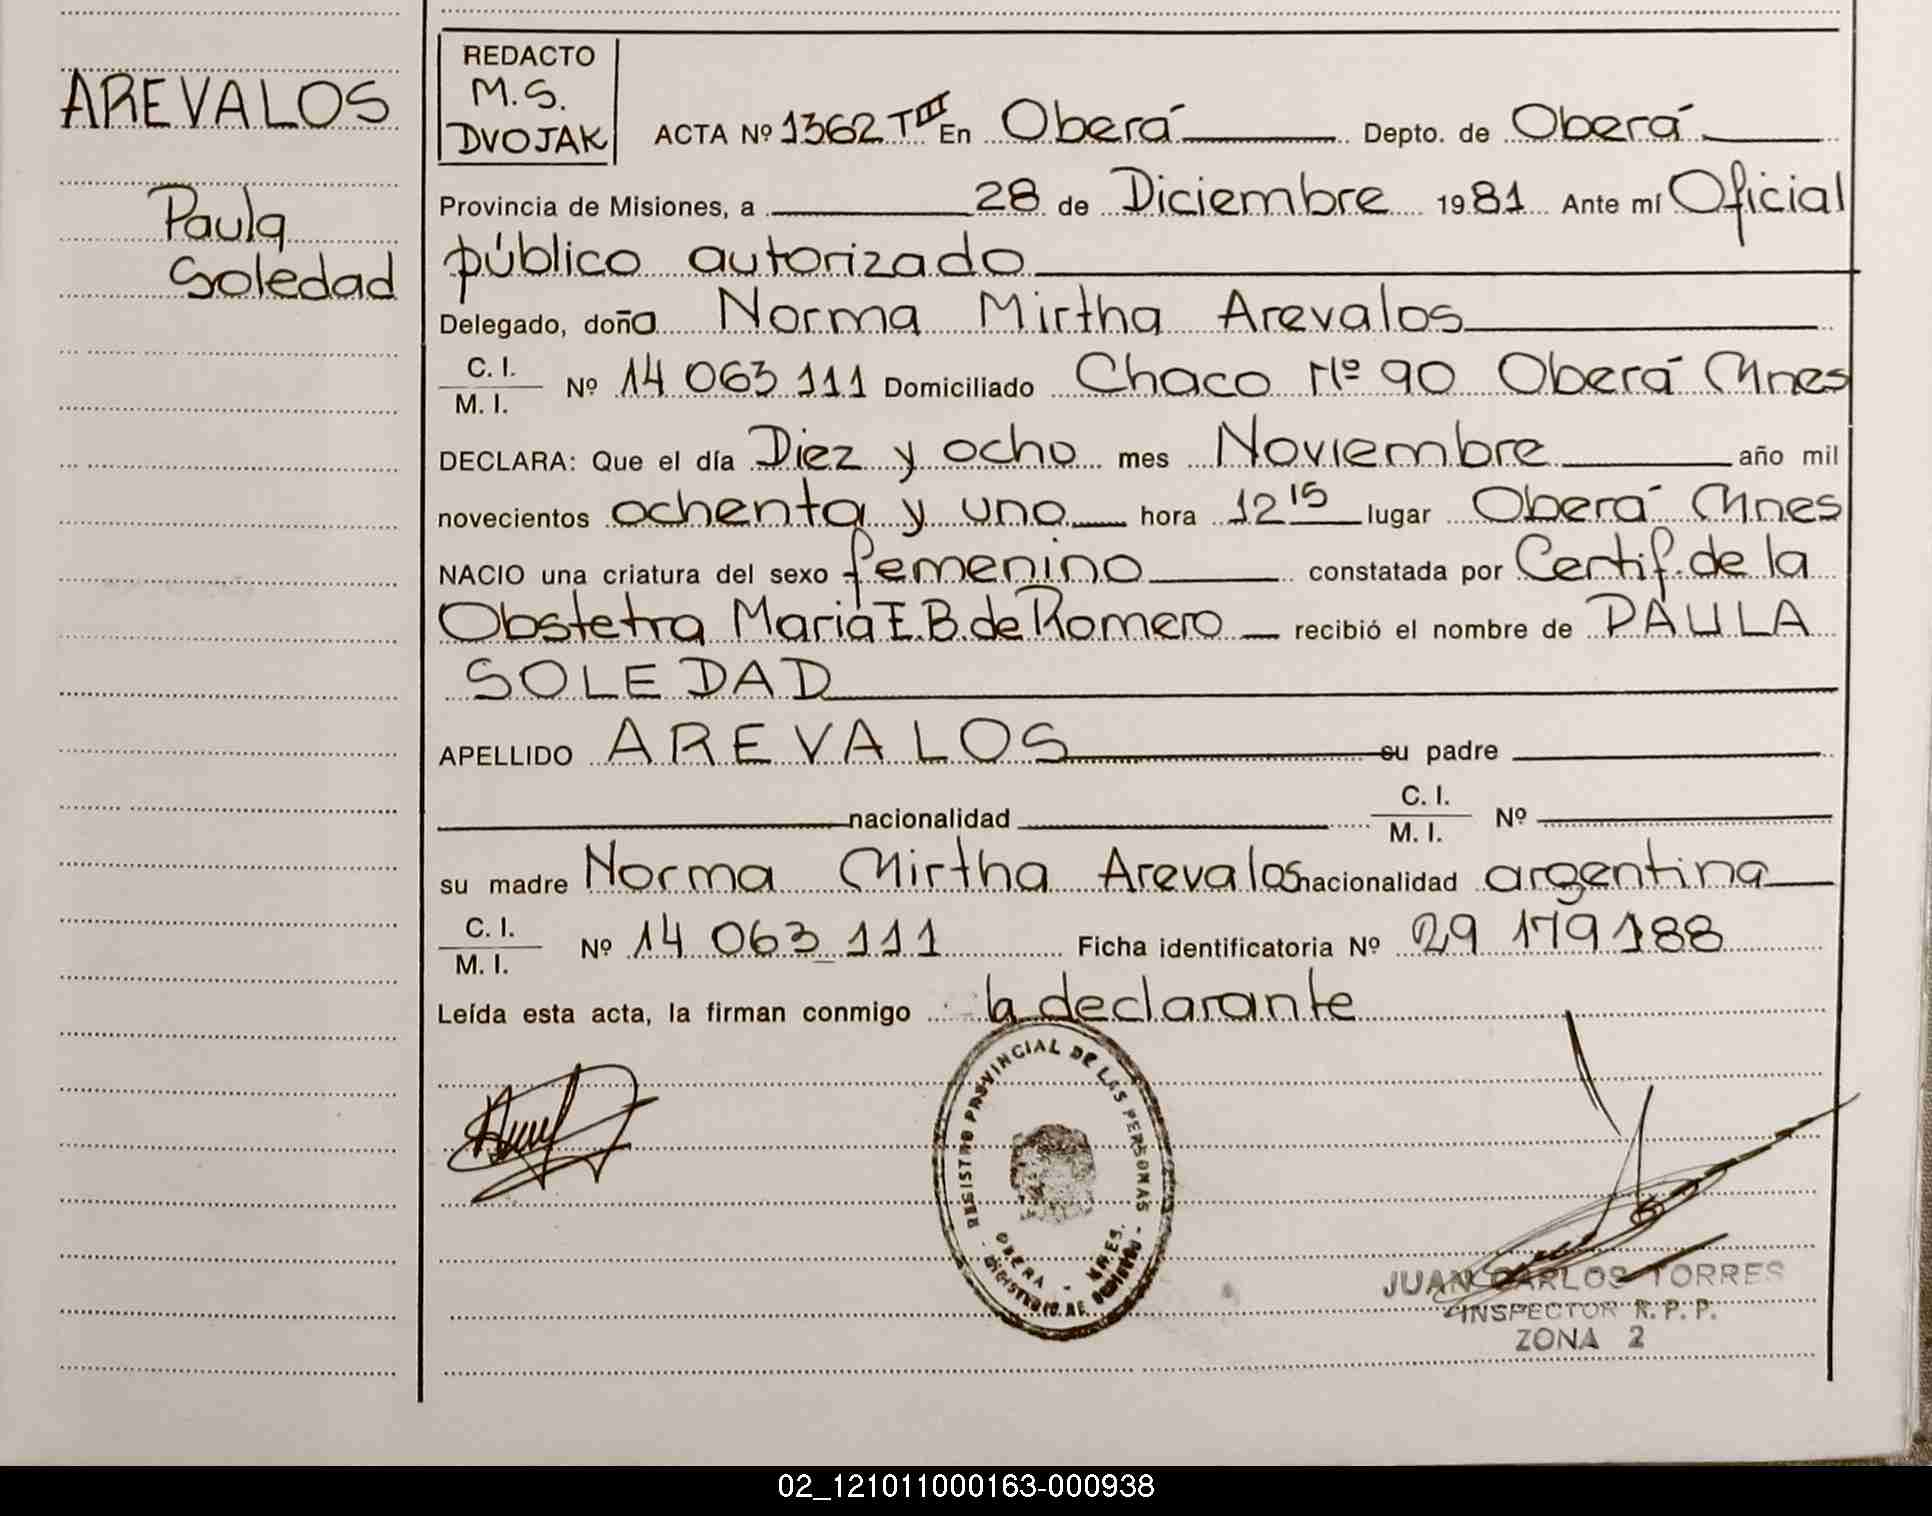 AREVALOS
Paula
Soledad
REDACTO
M.S.
DVOJAK
ACTA Nº 1362 TIII En Oberá Depto. de Oberá
Provincia de Misiones, a 28 de Diciembre 1981 Ante mí Oficial
público autorizado
Delegado, doña Norma Mirtha Arevalos
C. I.
M. I.
Nº 14 063 111 Domiciliado Chaco Nº 90 Oberá Mnes
DECLARA: Que el día Diez y ocho mes Noviembre año mil
novecientos ochenta y uno hora 12 15 lugar Oberá Mnes
NACIO una criatura del sexo femenino constatada por Certif. de la
Obstetra María E.B. de Romero recibió el nombre de PAULA
SOLEDAD
APELLIDO AREVALOS su padre
nacionalidad C. I.
M. I. Nº
su madre Norma Mirtha Arevalos nacionalidad argentina
C. I.
M. I.
Nº 14 063 111 Ficha identificatoria Nº 29 179 188
Leída esta acta, la firman conmigo la declarante
REGISTRO PROVINCIAL DE LAS PERSONAS
OBERA - MNES.
JUAN CARLOS TORRES
INSPECTOR R. P. P.
ZONA 2
02_121011000163-000938